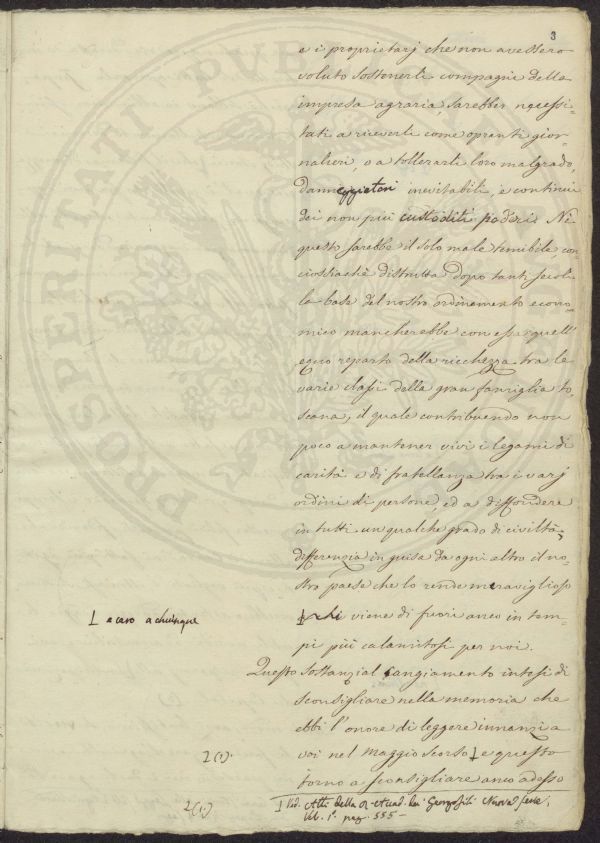 3
e i proprietarj che non avessero
voluto sostenerli compagni della
impresa agraria, sarebber necessi-
tati a riceverli come opranti gior-
nalieri, o a tollerarli loro malgrado,
danneggiatori inevitabili, e continui
dei non più custoditi poderi. Nè
questo sarebbe il solo male temibile, con-
ciossiachè distrutta dopo tanti secoli
la base del nostro ordinamento econo-
mico mancherebbe con essa quell'
equo reparto della ricchezza tra le
varie classi della gran famiglia to-
scana, il quale contribuendo non
poco a mantener vivi i legami di
carità e di fratellanza tra i varj
ordini di persone, ed a diffondere
in tutti un qualche grado di civiltà,
differenzia in guisa da ogni altro il no-
stro paese che lo rende meraviglioso
e caro a chiunque
viene di fuori anco in tem-
pi più calamitosi per noi.
Questo sostanzial cangiamento intesi di
sconsigliare nella memoria che
ebbi l'onore di leggere innanzi a
voi nel Maggio scorso, e questo
torno a sconsigliare anco adesso
2(1).
2(1.)
Vid. Atti della R. Accad. dei Georgofili Nuova serie,
Vol. 1° pag. 555 -
PROSPERITATI PUBLICAE